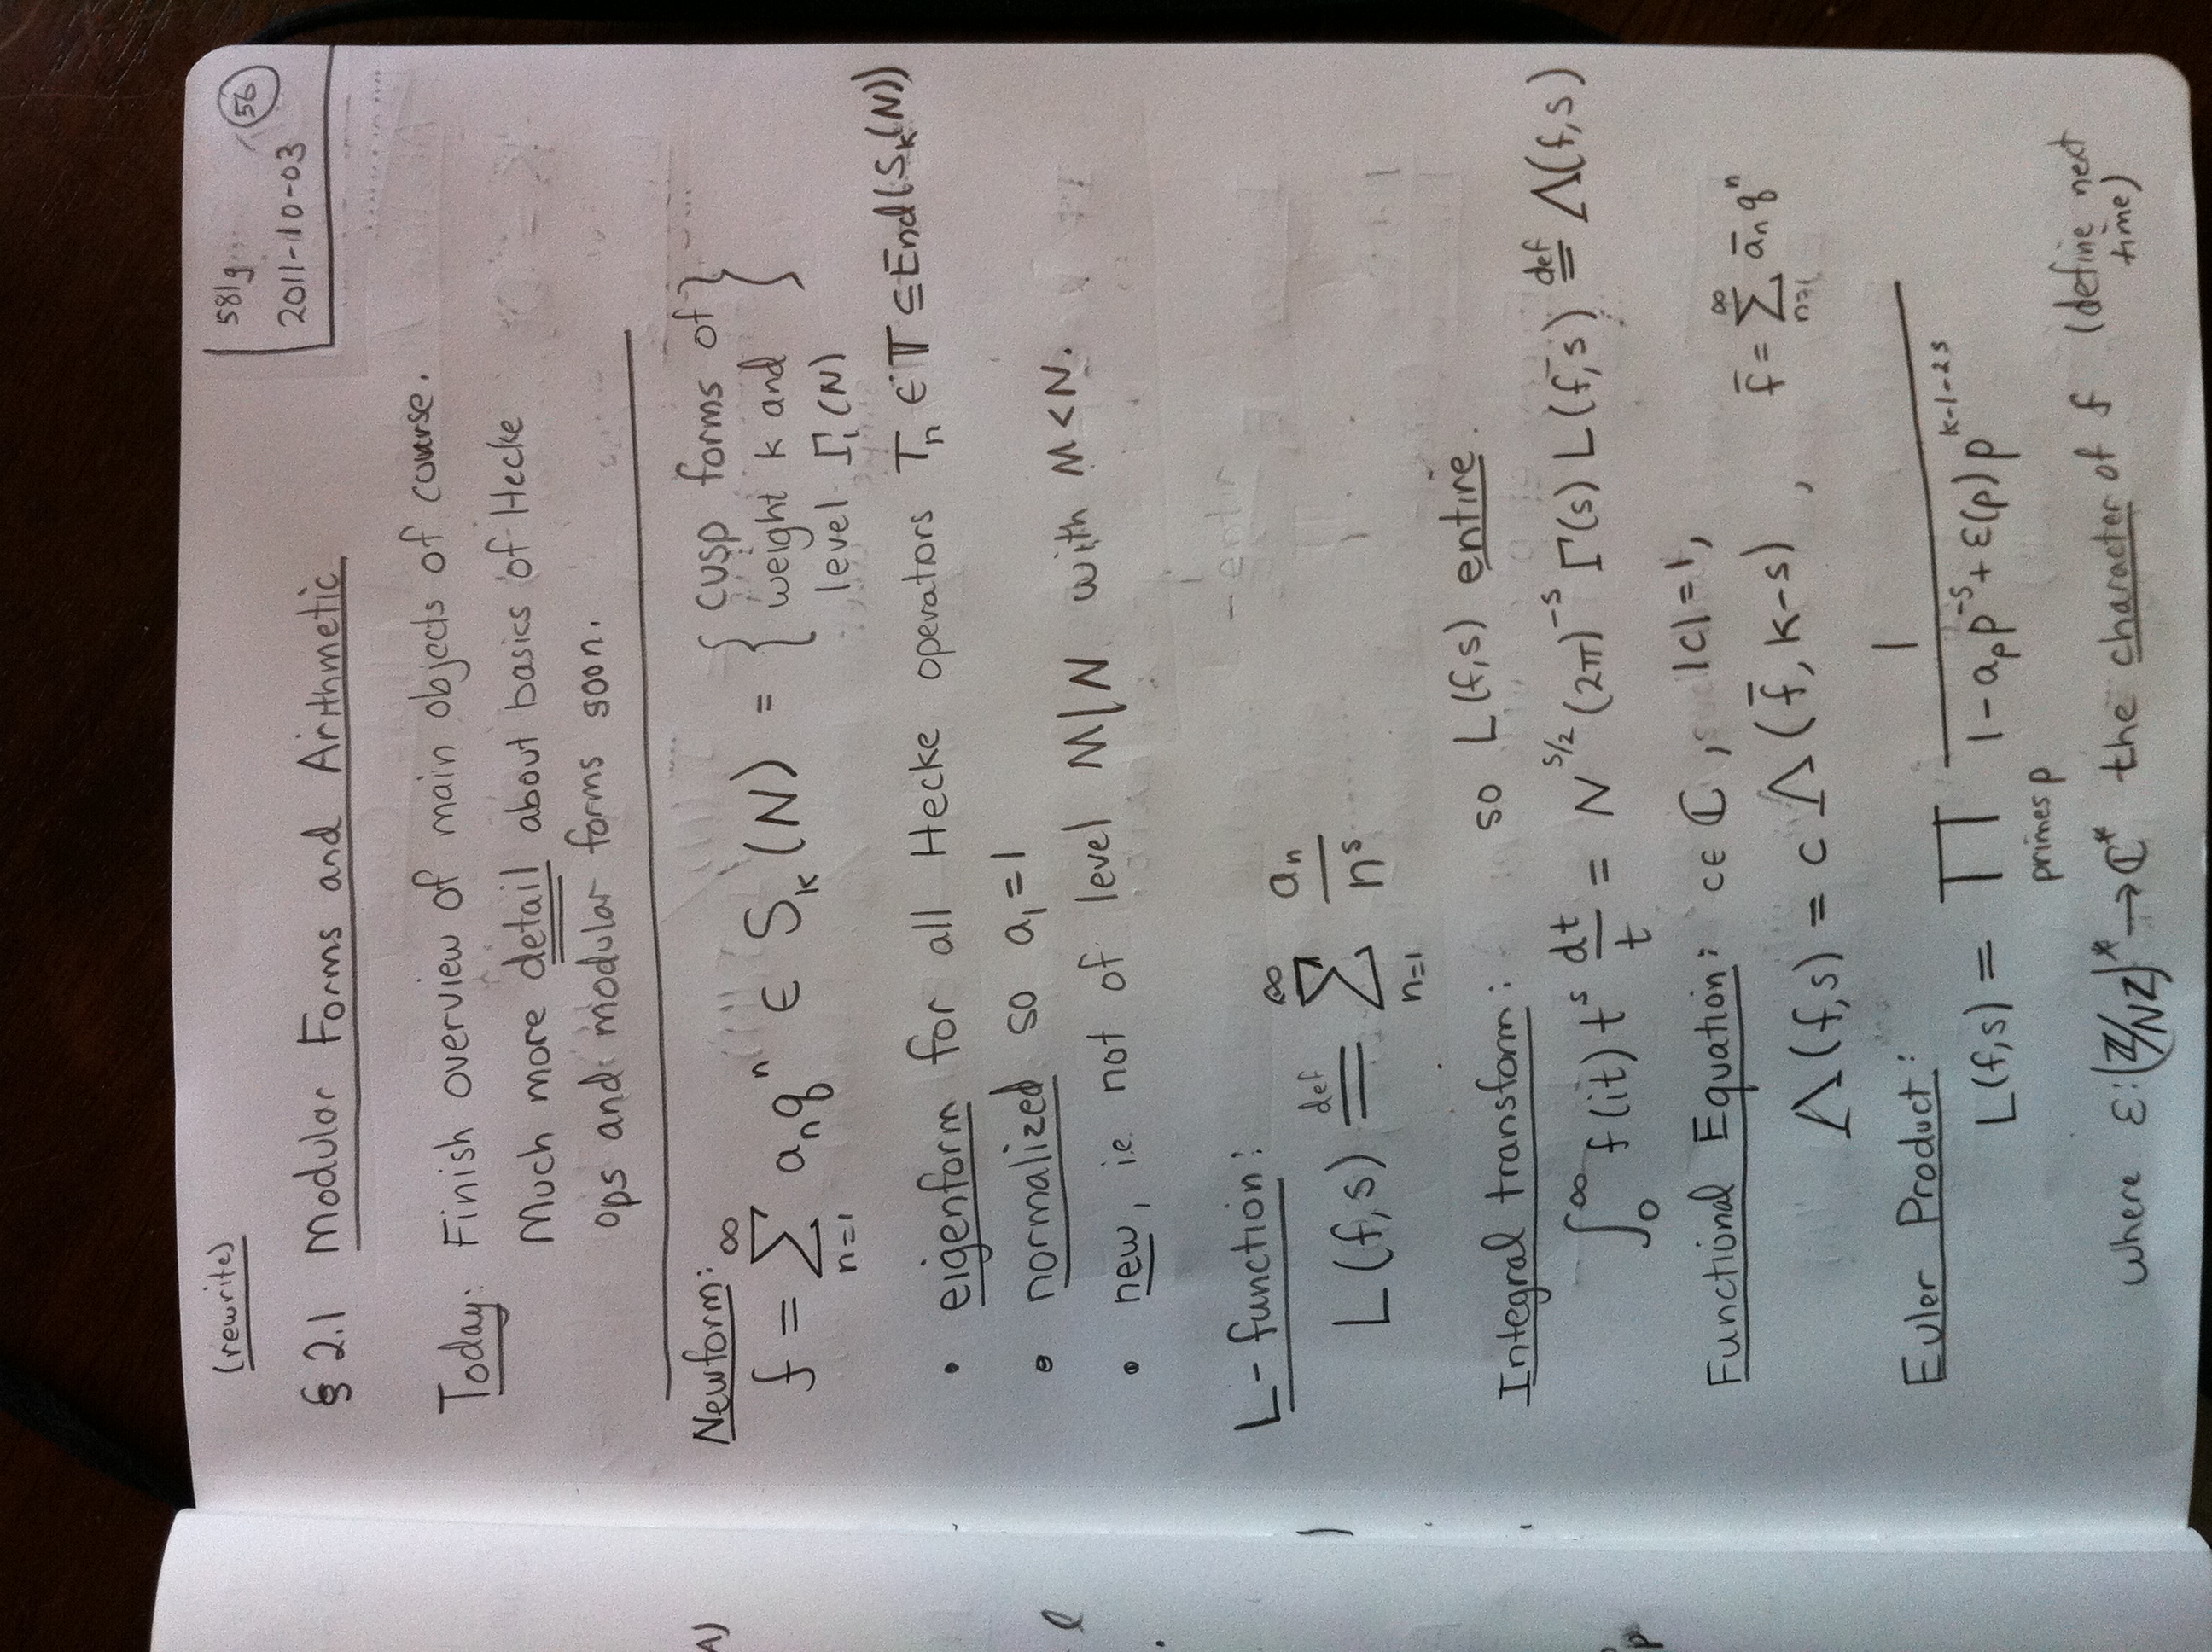 (rewrite)
581g
56
2011-10-03
§ 2.1 Modular Forms and Arithmetic
Today: Finish overview of main objects of course.
Much more detail about basics of Hecke
ops and modular forms soon.
Newform:
f = ∑_{n=1}^∞ a_n q^n ∈ S_k(N) = { cusp forms of
weight k and
level Γ_1(N) }
• eigenform for all Hecke operators T_n ∈ 𝕋 ⊆ End(S_k(N))
• normalized so a_1 = 1
• new, i.e. not of level M|N with M < N.
L-function:
L(f,s) =^{def} ∑_{n=1}^∞ a_n / n^s
so L(f,s) entire.
Integral transform:
∫_0^∞ f(it) t^s dt/t = N^{s/2} (2π)^{-s} Γ(s) L(f,s) =^{def} Λ(f,s)
Functional Equation: c ∈ ℂ, |c| = 1,
Λ(f,s) = c Λ(f̄, k-s), f̄ = ∑_{n≥1}^∞ ā_n q^n
Euler Product:
L(f,s) = ∏_{primes p} 1 / (1 - a_p p^{-s} + ε(p) p^{k-1-2s})
where ε: (ℤ/Nℤ)^* → ℂ^* the character of f (define next
time)
A)
l
p